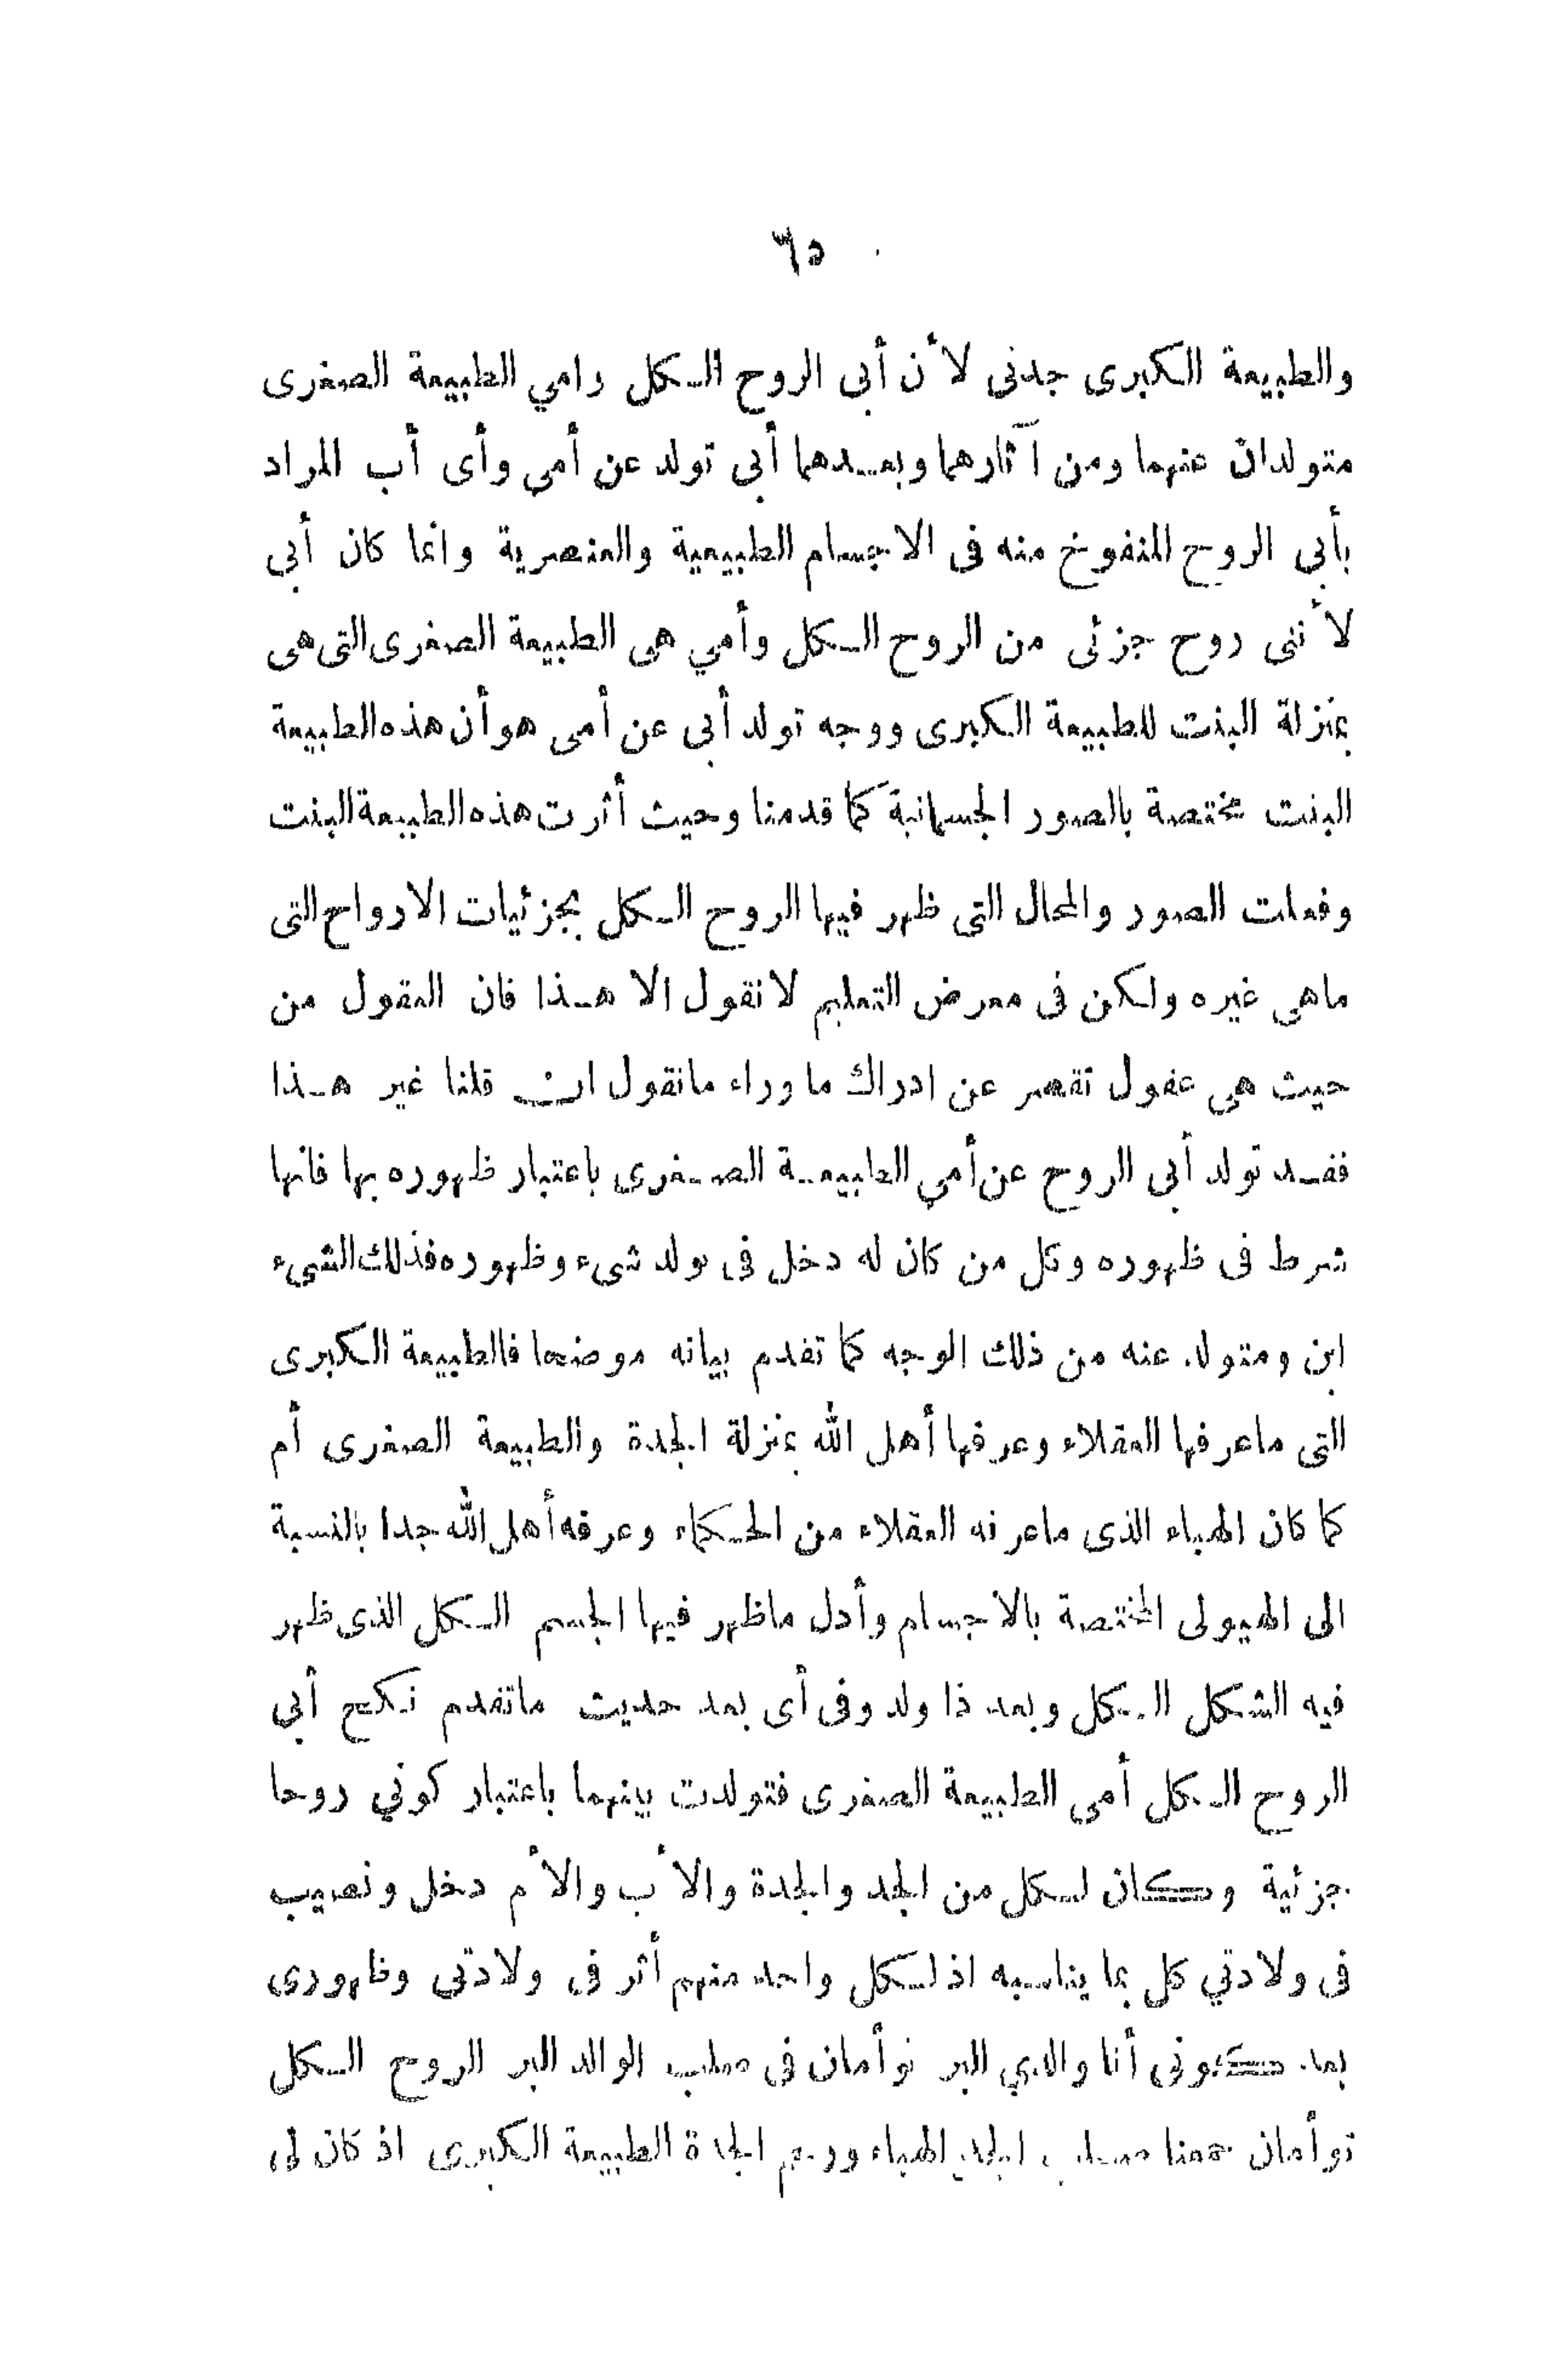 ٦٥
والطبيعة الكبرى جدتى لأن أبى الروح الكل وامي الطبيعة الصغرى
متولدان عنهما ومن آثارهما وبعدهما أبى تولد عن أمى وأى أب المراد
بأبى الروح المنفوخ منه فى الاجسام الطبيعية والعنصرية وانما كان أبى
لأننى روح جزئى من الروح الكل وأمي هى الطبيعة الصغرى التى هى
بمنزلة البنت للطبيعة الكبرى ووجه تولد أبى عن أمى هو أن هذه الطبيعة
البنت مختصة بالصور الجسمانية كما قدمنا وحيث أثرت هذه الطبيعة البنت
وفعلت الصور والمحال التى ظهر فيها الروح الكل بجزئيات الارواح التى
ماهى غيره ولكن فى معرض التعليم لا نقول الا هذا فان العقول من
حيث هى عقول تقصر عن ادراك ما وراء ما نقول ان قلنا غير هذا
فقد تولد أبى الروح عن أمي الطبيعة الصغرى باعتبار ظهوره بها فانها
شرط فى ظهوره وكل من كان له دخل فى تولد شىء وظهوره فذلك الشىء
ابن ومتولد عنه من ذلك الوجه كما تقدم بيانه موضحا فالطبيعة الكبرى
التى ماعرفها العقلاء وعرفها أهل الله بمنزلة الجدة والطبيعة الصغرى أم
كما كان الهباء الذى ماعرفه العقلاء من الحكماء وعرفه أهل الله جدا بالنسبة
الى الهيولى المختصة بالاجسام وأول ماظهر فيها الجسم الكل الذى ظهر
فيه الشكل الكل وبعد ذا ولد وفى أى بعد حديث ماتقدم نكح أبى
الروح الكل أمى الطبيعة الصغرى فتولدت بينهما باعتبار كوني روحا
جزئية وكان لكل من الجد والجدة والأب والأم دخل ونصيب
فى ولادتي كل بما يناسبه اذ لكل واحد منهم أثر فى ولادتى وظهورى
بعد كونى أنا والدي البر توأمان فى صلب الوالد البر الروح الكل
توأمان ضمنا صلب الجد الهباء ورحم الجدة الطبيعة الكبرى اذ كان لى